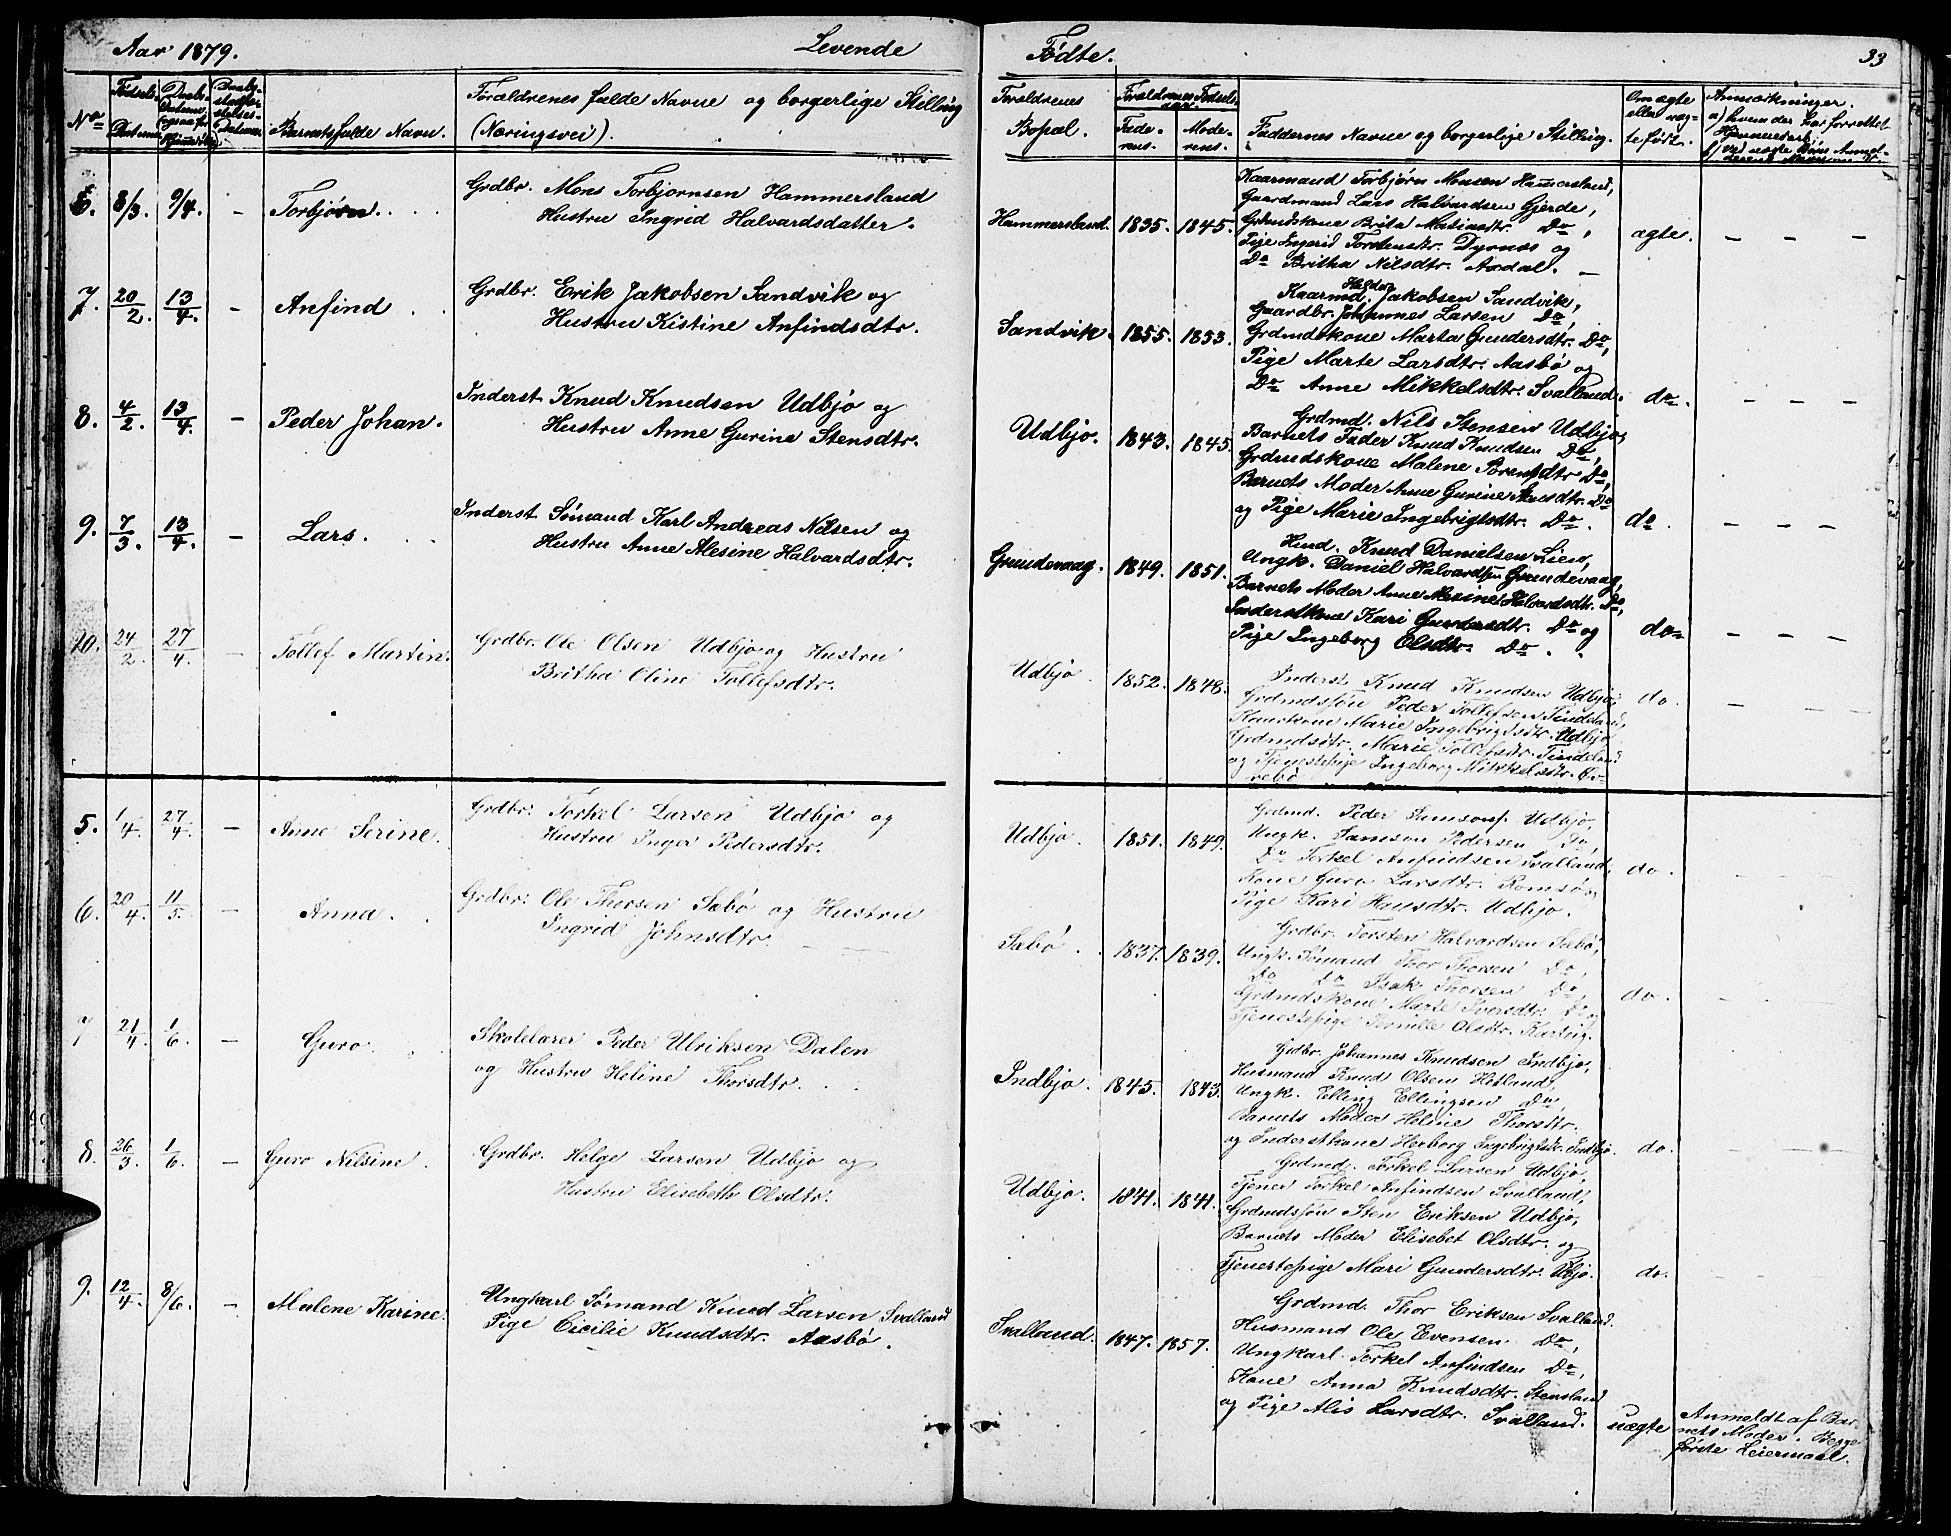 Aar 1879.
Levende
Fødte.
33
No
Fødsels-
Datum.
Daabs-
Datum
Barnets fulde Navn.
Forældrenes fulde Navne og borgerlige Stilling
(Næringsvei).
Forældrenes
Bopæl.
Forældrenes Fødsels-
aar.
Fade-
rens.
Mode-
rens.
Faddernes Navne og borgerlige Stilling.
Om ægte
eller uæg-
te født.
Anmærkninger.
6. 8/3. 9/4. — Torbjørn.
Grdbr. Mons Torbjørnsen Hammersland
Hustru Ingrid Halvardsdatter.
Hammersland. 1835. 1845.
Kaarmand Torbjørn Monsen Hammersland,
Gaardmand Lars Halvardsen Gjerde,
Grdmdskone Brita Do,
Pige Ingerid Dyrnæs og
Do Britha Nilsdtr. Axdal.
ægte. — — —
7. 20/2. 13/4. — Anfind
Grdbr. Erik Jakobsen Sandvik og
Hustru Kistine Anfindsdtr.
Sandvik. 1855. 1853.
Kaarmd. Jakobsen Sandvik,
Gaardbr. Johannes Larsen Do,
Grdmdskone Marta Gundersdtr. Do,
Pige Marte Larsdtr. Aasbø og
Do Anne Mikkelsdtr. Svalland.
do. — — —
8. 4/2. 13/4. — Peder Johan.
Inderst Knud Knudsen Udbjo og
Hustru Anne Gurine Stensdtr.
Udbjo. 1843. 1845.
Grdmd. Nils Stensen Udbjo,
Barnets Fader Knud Knudsen Do,
Grdmdskone Malene Do,
Barnets Moder Anne Gurine Stensdtr. Do
og Pige Marie Ingebrigtsdtr. Do.
do. — — —
9. 7/3. 13/4. — Lars.
Inderst Sømand Karl Andreas Nilsen og
Hustru Anne Alesine Halvardsdtr.
Grundevaag. 1849. 1851.
Hmd. Knud Danielsen Lien,
Ungk. Daniel Halvardsen Grundevaag,
Barnets Moder Anne Alesine Halvardsdtr. Do,
Inderstkone Kari Gundersdtr. Do og
Pige Ingeborg Olsdtr. Do.
do. — — —
10. 24/2. 27/4. — Tollef Martin.
Grdbr. Ole Olsen Udbjo og Hustru
Britha Oline Tollefsdtr.
Udbjo. 1852. 1848.
Inderst Knud Knudsen Udbjo,
Grdmdssøn Peder Tollefsen Tindeland,
Kaarkone Marie Ingebrigtsdtr. Udbjo
Grdmdsdtr. Marie Tollefsdtr. Tindeland
og Tjenestepige Ingeborg Mikkelsdtr.
do. — — —
5. 1/4. 27/4. — Anne Serine.
Grdbr. Torkel Larsen Udbjo og
Hustru Inger Pedersdtr.
Udbjo. 1851. 1849.
Grdmd. Peder Udbjo,
Ungk. Samson Pedersen Do,
Do Torkel Anfindsen Svalland,
Kone Guro Larsdtr. Romsø og
Pige Kari Hansdtr. Udbjo.
do.
6. 20/4. 11/5. — Anna.
Grdbr. Ole Thorsen Sæbø og Hustru
Ingrid Johnsdtr.
Sæbø. 1837. 1839.
Grdbr. Torsten Halvardsen Sæbø,
Ungk. Sømand Thor Thorsen Do,
Do Do Isak Thorsen Do,
Grdmdskone Marte Iversdtr. Do og
Tjenestepige Pernille Olsdtr.
do.
7 21/4. 1/6. — Guro.
Skolelærer Peder Ulriksen Dalen
og Hustru Heline Thorsdtr.
Indbjo. 1845. 1843.
Grdbr. Johannes Knudsen Indbjo,
Husmand Knud Olsen Hetland,
Ungk. Elling Ellingsen Do,
Barnets Moder Heline Thorsdtr.
og Inderstkone Herborg Ingebrigtsdtr. Indbjo.
do.
8. 26/3. 1/6. — Guro Nilsine.
Grdbr. Helge Larsen Udbjo og
Hustru Elisebeth Olsdtr.
Udbjo. 1841. 1841.
Grdmd. Torkel Larsen Udbjo,
Tjener Torkel Anfindsen Svalland,
Grdmdssøn Sten Eriksen Udbjo,
Barnets Moder Elisebet Olsdtr. og
Tjenestepige Mari Gundersdtr. Ubjo.
do.
9. 12/4. 8/6. — Malene Karine.
Ungkarl Sømand Knud Larsen Svalland
Pige Cicilie Knudsdtr. Aasbø.
Svalland. 1847. 1857.
Grdmd. Thor Eriksen Svalland.
Husmand Ole Evensen Do,
Ungkarl Torkel Anfindsen Do,
Kone Anna Knudsdtr. Stensland
og Pige Alis Larsdtr. Svalland.
uægte
Anmeldt af Bar
nets Moder. Begge
første Leiermaal.